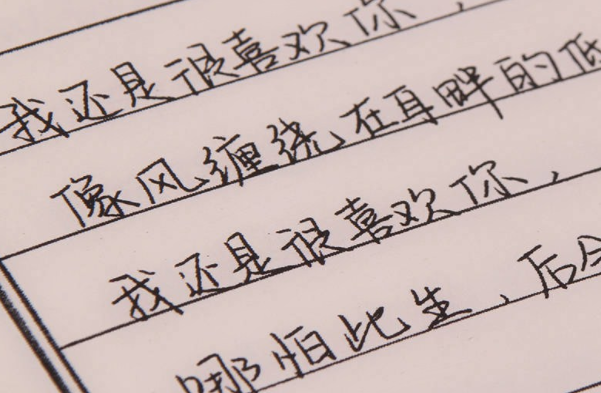 我还是很喜欢你，
像风缠绕在耳畔的低
我还是很喜欢你，
哪怕比生、后会